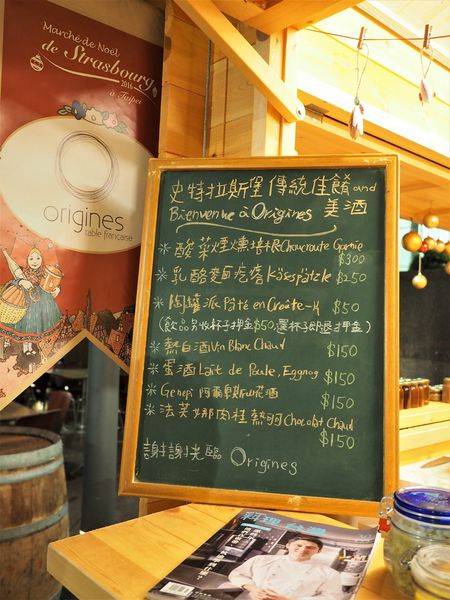 Marché de Noël
de Strasbourg
2016
à Taipei
origines
table française
史特拉斯堡傳統佳餚and
Bienvenue à Origines 美酒
酸菜煙燻培根Choucroute Garnie
$300
乳酪麵疙瘩Käsespätzle $250
陶罐派Pâté en Croûte $50
(飲品另收杯子押金$50,還杯子即退押金)
熱白酒Vin Blanc Chaud $150
蛋酒Lait de Poule, Eggnog $150
Genepi 阿爾卑斯山花酒 $150
法芙娜肉桂熱可Chocolat Chaud
$150
謝謝光臨 Origines
料理